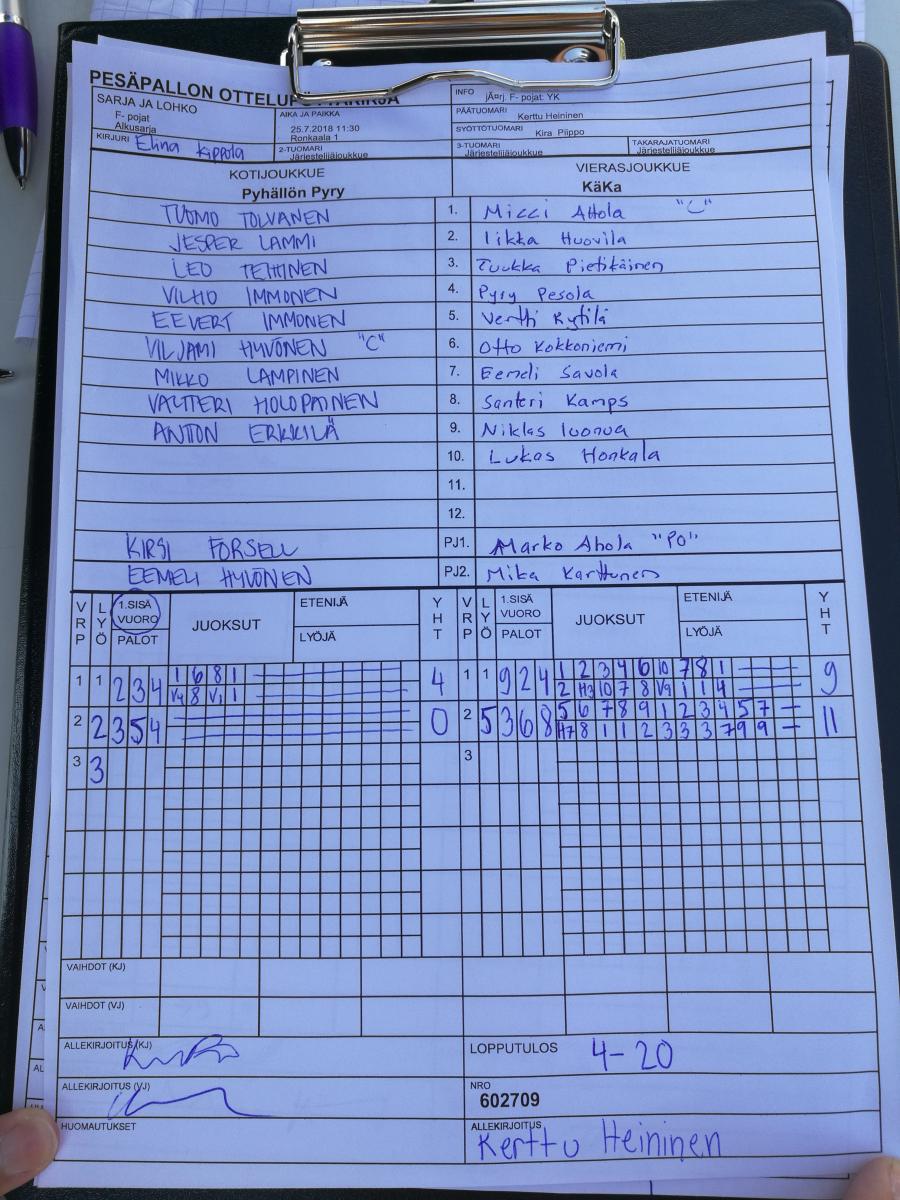 PESÄPALLON OTTELUPÖYTÄKIRJA
SARJA JA LOHKO
F- pojat
Alkusarja
AIKA JA PAIKKA
25.7.2018 11:30
Ronkaala 1
INFO jÃ¤rj. F- pojat: YK
PÄÄTUOMARI Kerttu Heininen
SYÖTTÖTUOMARI Kira Piippo
KIRJURI Elina Kippola
2-TUOMARI
Järjestelijäjoukkue
3-TUOMARI
Järjestelijäjoukkue
TAKARAJATUOMARI
Järjestelijäjoukkue
KOTIJOUKKUE
Pyhällön Pyry
VIERASJOUKKUE
KäKa
TUOMO TOLVANEN 1. Micci Ahola "C"
JESPER LAMMI 2. Iikka Huovila
LEO TEHTINEN 3. Tuukka Pietikäinen
VILHO IMMONEN 4. Pyry Pesola
EEVERT IMMONEN 5. Vertti Kytilä
VILJAMI HYVÖNEN "C" 6. Otto Kokkoniemi
MIKKO LAMPINEN 7. Eemeli Savola
VALTTERI HOLOPAINEN 8. Santeri Kamps
ANTON ERKKILÄ 9. Niklas
10. Lukas Honkala
11.
12.
KIRSI FORSELL PJ1. Marko Ahola "PO"
EEMELI HYVÖNEN PJ2. Mika Karttunen
VRP LYÖ 1.SISÄ VUORO PALOT JUOKSUT ETENIJÄ LYÖJÄ YHT VRP LYÖ 1.SISÄ VUORO PALOT JUOKSUT ETENIJÄ LYÖJÄ YHT
1 1 2 3 4 1 6 8 1 4 1 1 9 2 4 1 2 3 4 6 10 7 8 1 9
V4 8 V1 1 2 H3 10 7 8 V9 1 1 4
2 2 3 5 4 0 2 5 3 6 8 5 6 7 8 9 1 2 3 4 5 7 11
H7 8 1 1 2 3 3 3 7 9 9
3 3 3
VAIHDOT (KJ)
VAIHDOT (VJ)
ALLEKIRJOITUS (KJ)
LOPPUTULOS 4-20
ALLEKIRJOITUS (VJ)
NRO
602709
HUOMAUTUKSET
ALLEKIRJOITUS
Kerttu Heininen